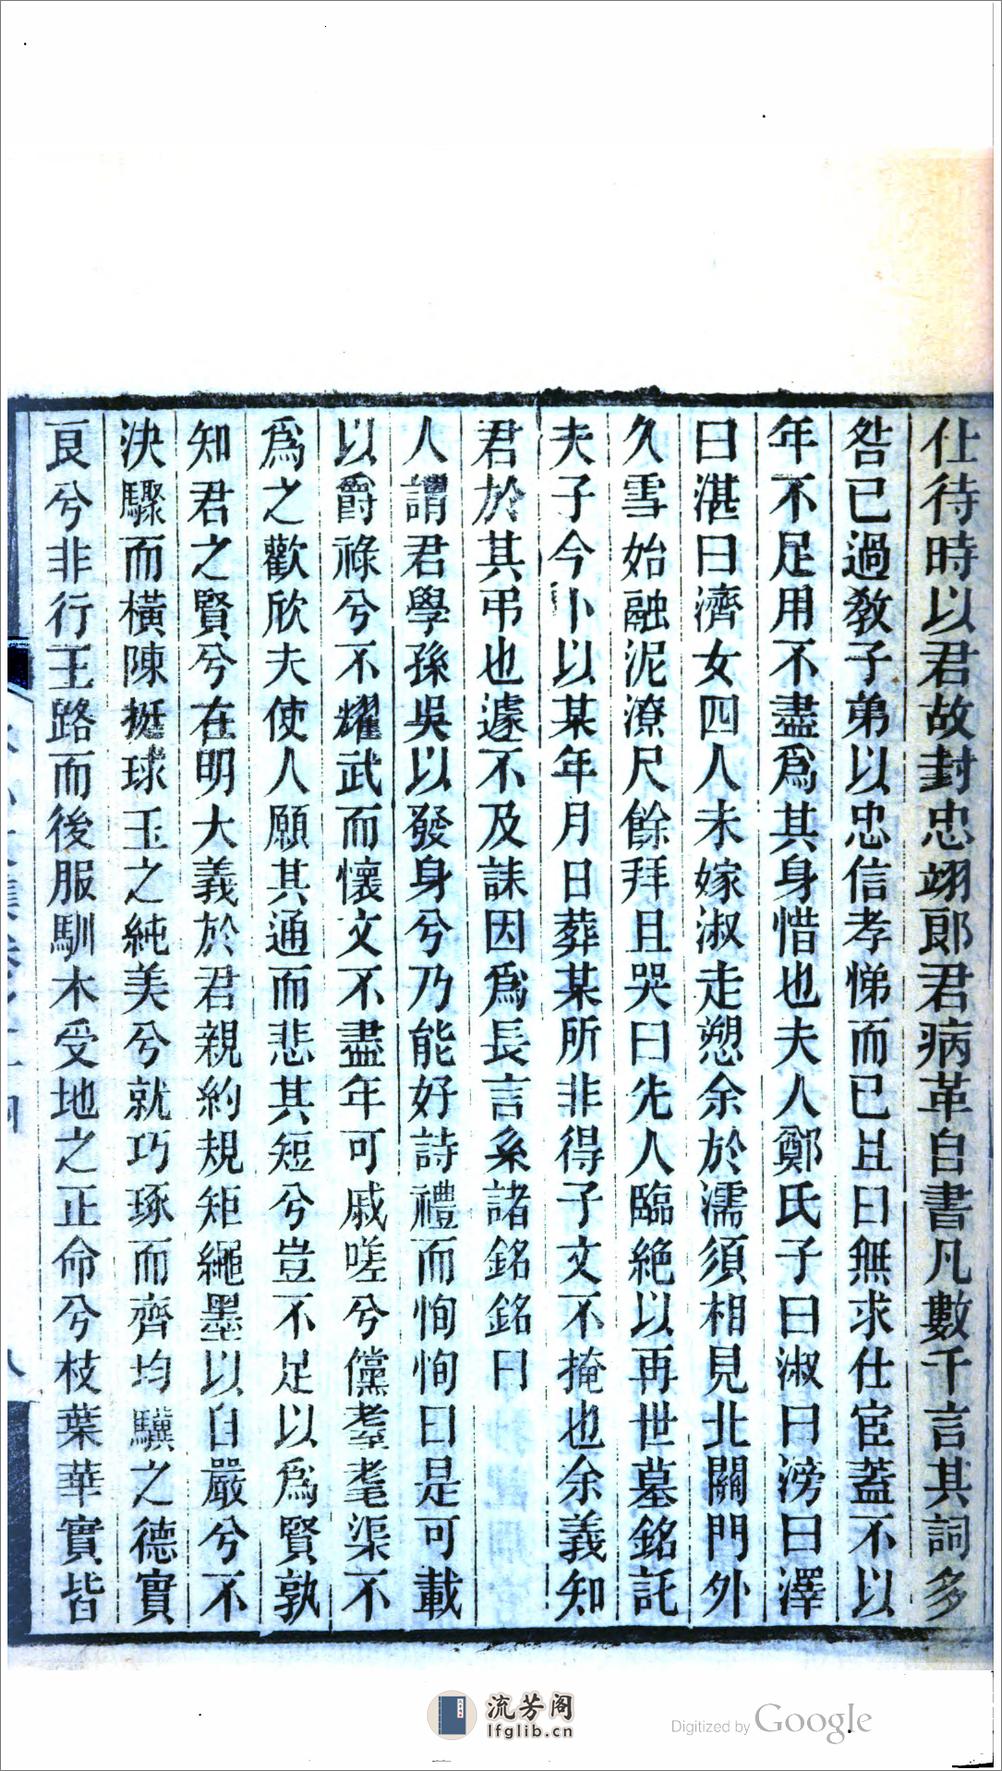 仕待時以君故封忠翊郎君病革自書凡數千言其詞多
咎已過敎子弟以忠信孝悌而已且曰無求仕宦蓋不以
年不足用不盡爲其身惜也夫人鄭氏子曰淑曰滂曰澤
曰湛曰濟女四人未嫁淑走愬余於濡須相見北關門外
久雪始融泥潦尺餘拜且哭曰先人臨絶以再世墓銘託
夫子今卜以某年月日葬某所非得子文不掩也余義知
君於其弔也遽不及誄因爲長言系諸銘銘曰
人謂君學孫吳以發身兮乃能好詩禮而恂恂曰是可載
以爵祿兮不耀武而懷文不盡年可戚嗟兮儻羣耄渠不
爲之歡欣夫使人願其通而悲其短兮豈不足以爲賢孰
知君之賢兮在明大義於君親約規矩繩墨以自嚴兮不
決驟而橫陳挺球玉之純美兮就巧琢而齊均驥之德實
艮兮非行王路而後服馴木受地之正命兮枝葉華實皆
八
流芳阁
lfglib.cn
Digitized by Google